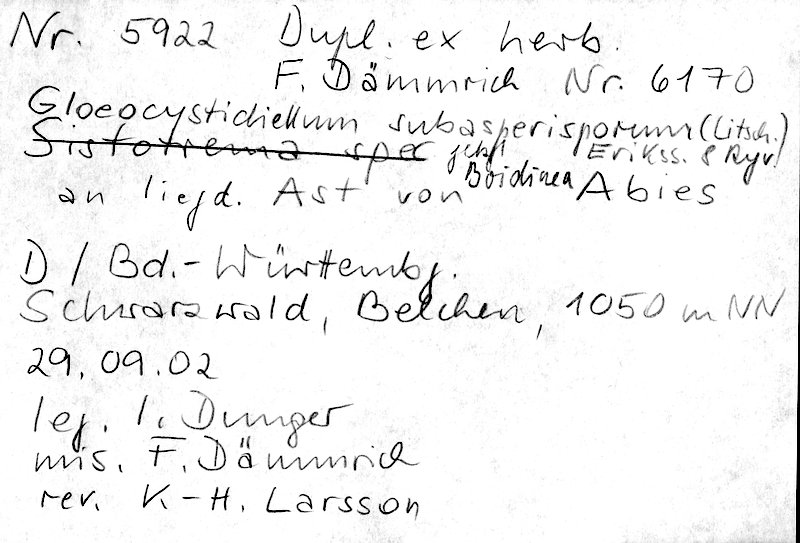 Nr. 5922 Dupl. ex herb.
F. Dämmrich Nr. 6170
Gloeocystidiellum subasperisporum (Litsch.)
Sistotrema sper jetzt Erikss. & Ryv.
Boidinea
an liegd. Ast von Abies
D / Bd.-Württembg.
Schwarzwald, Belchen, 1050 m NN
29.09.02
leg. I. Dunger
mis. F. Dämmrich
rev. K-H. Larsson